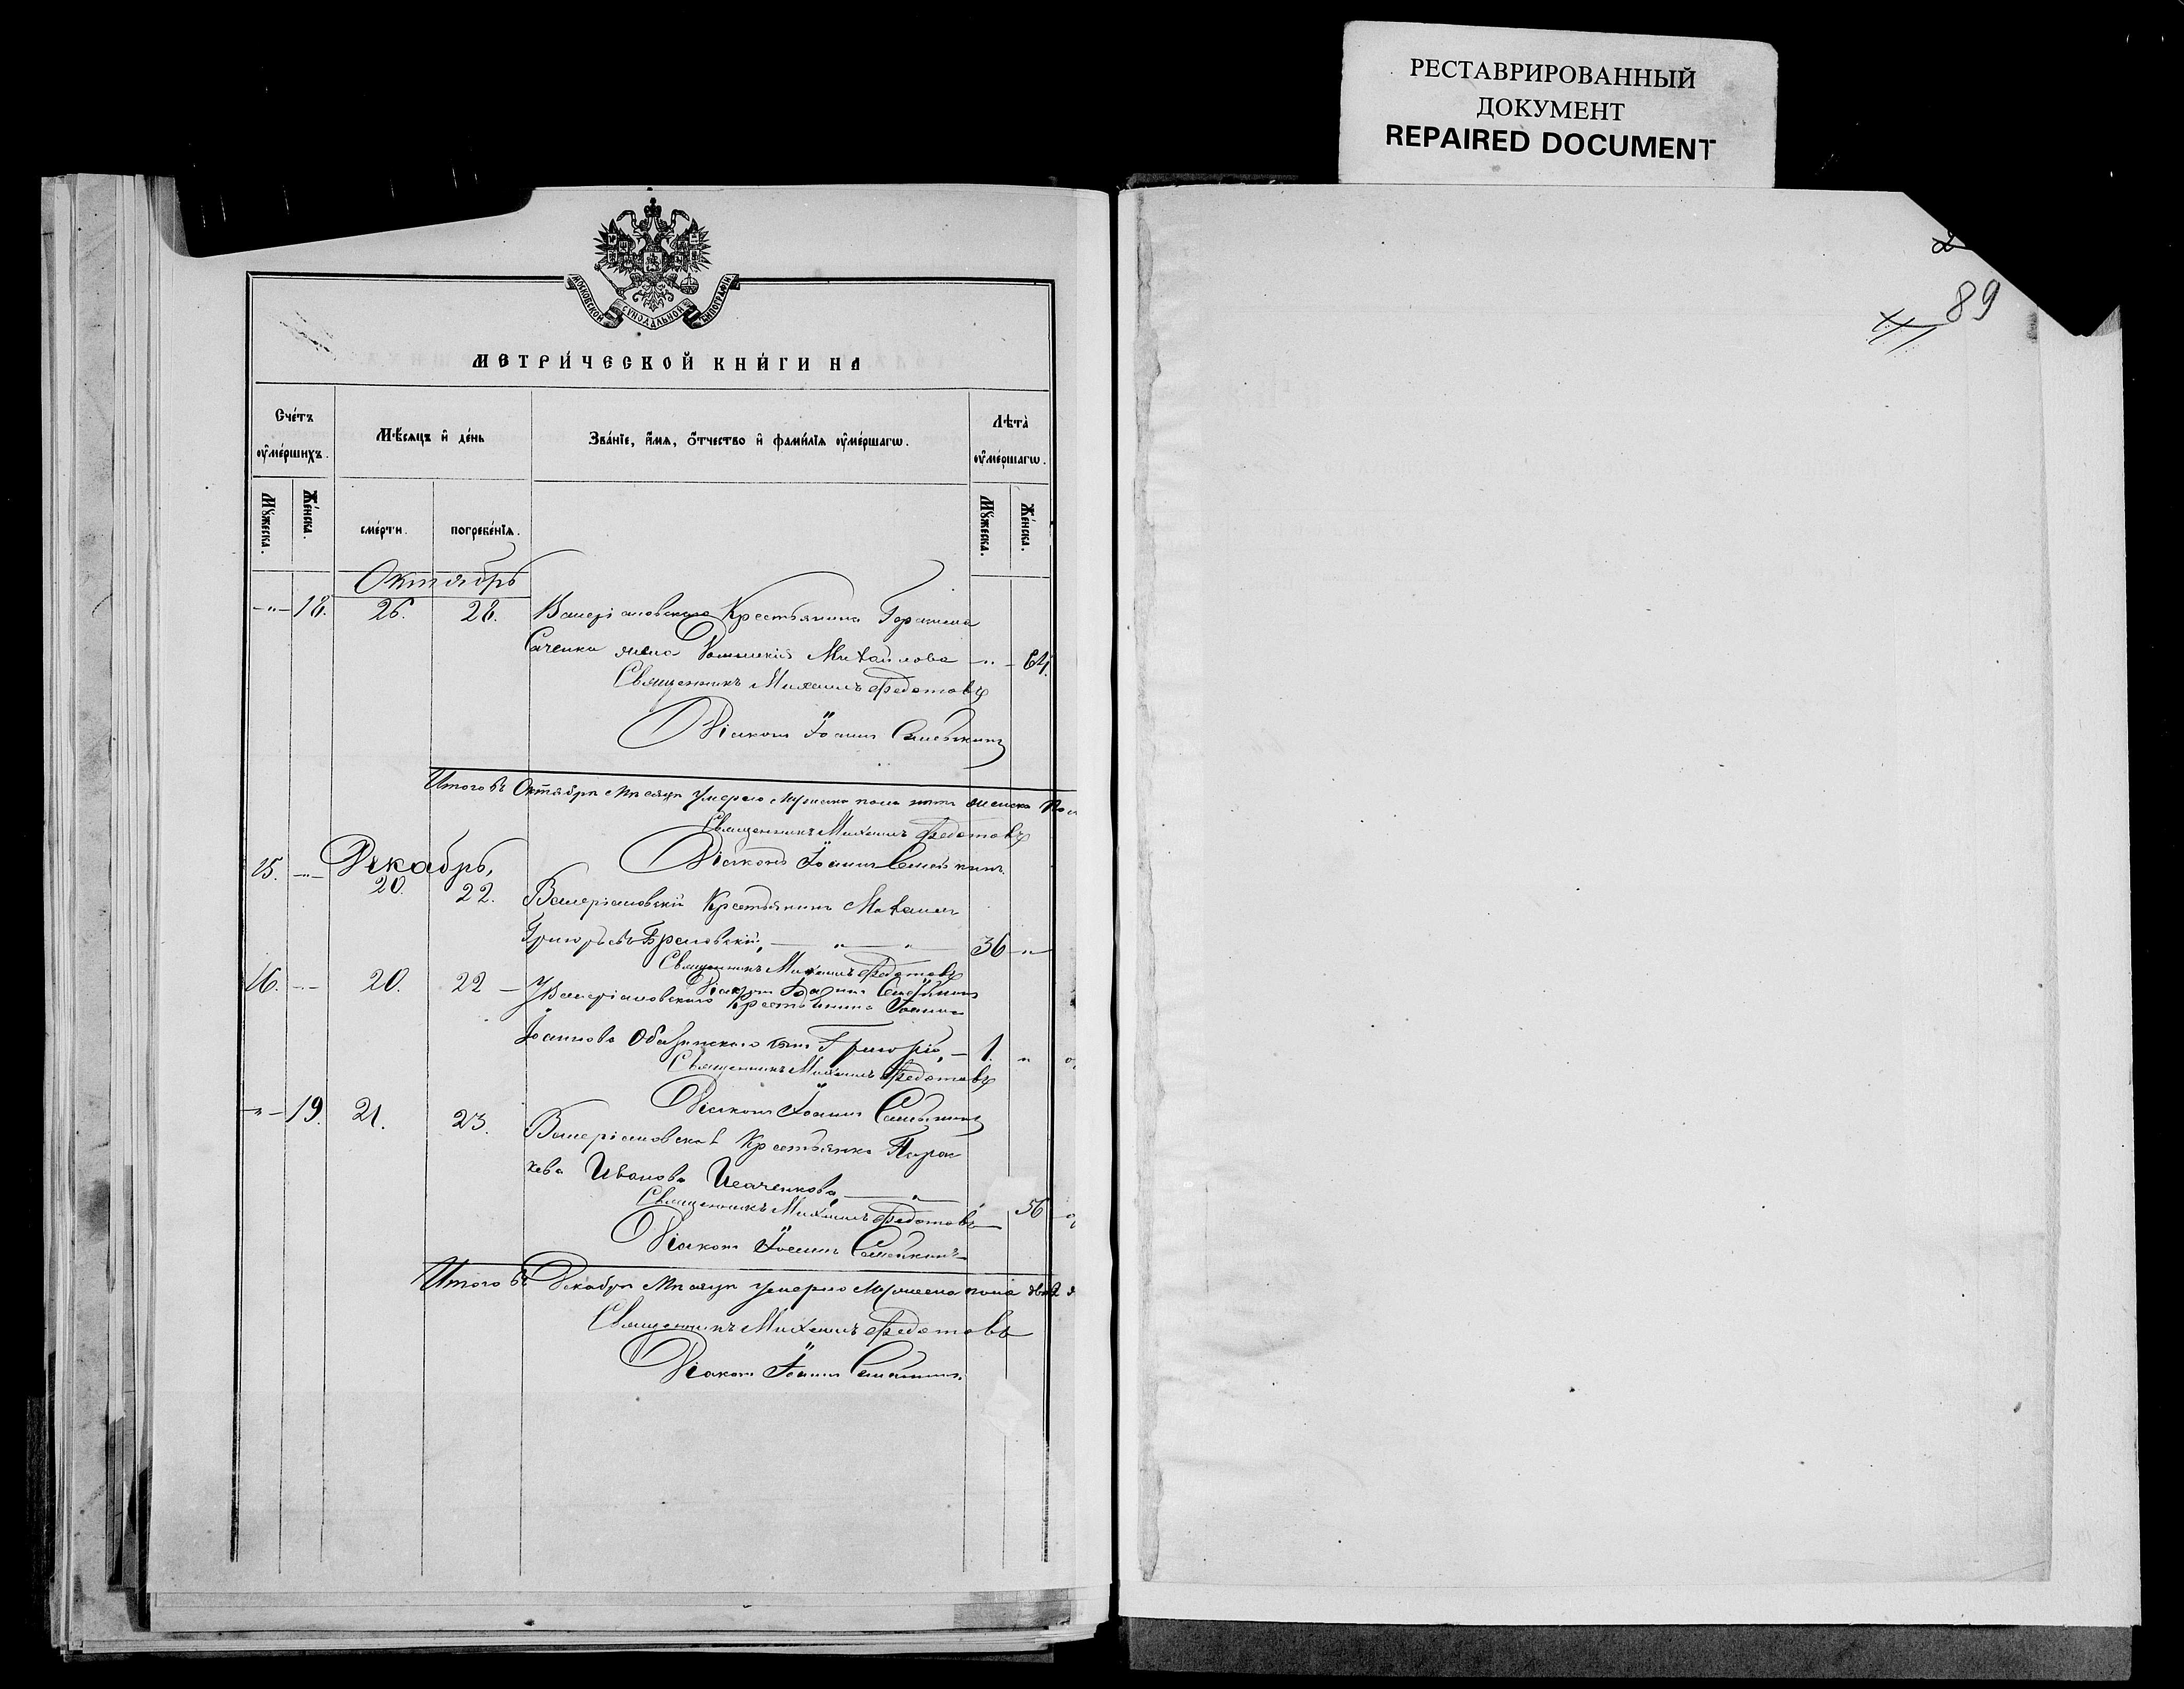 РЕСТАВРИРОВАННЫЙ
ДОКУМЕНТ
REPAIRED DOCUMENT
89
МОСКОВСКОЙ СУНОДАЛЬНОЙ ТИПОГРАФІИ
МЕТРИ́ЧЕСКОЙ КНИ́ГИ НА
Сче́тъ оуме́ршихъ.
Мѣ́сяцъ и де́нь
Зва́нїе, и́мя, о́тчество и фами́лїя оуме́ршагѡ.
Лѣта̀ оуме́ршагѡ.
Му́жеска.
Же́нска.
сме́рти.
погребе́нїя.
Му́жеска.
Же́нска.
Октябрь
-"- 18. 26. 28. Валеріановскаго Крестьянина Герасима
жена Михайлова -"- 64.
Священникъ Михаилъ Федотовъ
Діаконъ Іоаннъ Семыкинъ
Итого въ Октябрѣ Мѣсяцѣ умерло мужеска пола нѣтъ женска
Священникъ Михаилъ Федотовъ
Діаконъ Іоаннъ Семыкинъ
Декабрь,
15. -"- 20. 22. Валеріановскій Крестьянинъ Михаилъ
Григорьевъ 36 -"-
Священникъ Михаилъ Федотовъ
Діаконъ Іоаннъ Семыкинъ
16. -"- 20. 22 - У Валеріановскаго Крестьянина Іоанна
Іоаннова сынъ Григорій, - 1. "
Священникъ Михаилъ Федотовъ
Діаконъ Іоаннъ Семыкинъ
-"- 19. 21. 23. Валеріановская Крестьянка Парас
кева Иванова Исаченкова 56
Священникъ Михаилъ Федотовъ
Діаконъ Іоаннъ Семыкинъ
Итого въ Декабрѣ Мѣсяцѣ умерло Мужеска пола два 2
Священникъ Михаилъ Федотовъ
Діаконъ Іоаннъ Семыкинъ.